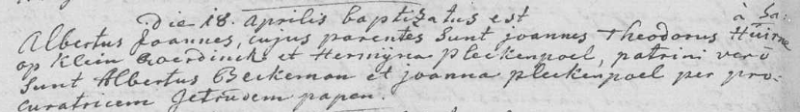 die 18. aprilis baptizatus est
Albertus Joannes, cujus parentes sunt joannes Theodorus
op Klein Roerdinck et Hermijna pleckenpoel, patrini vero
sunt Albertus Beckeman et joanna pleckenpoel per pro-
curatricem Jetrudem papen.